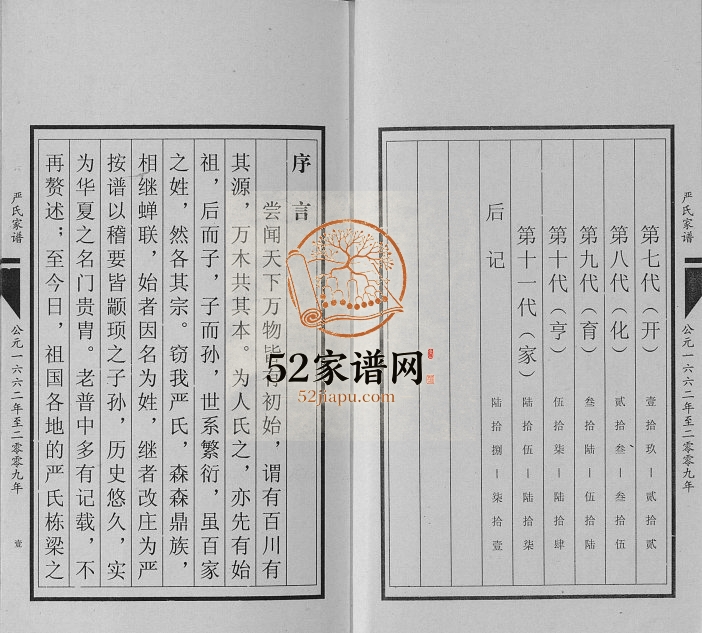 严氏家谱
公元一六六二年至二零零九年
第七代（开） 壹拾玖－贰拾贰
第八代（化） 贰拾叁－叁拾伍
第九代（育） 叁拾陆－伍拾陆
第十代（亨） 伍拾柒－陆拾肆
第十一代（家） 陆拾伍－陆拾柒
后记 陆拾捌－柒拾壹
序言
尝闻天下万物皆有初始，谓有百川有
其源，万木共其本。为人氏之，亦先有始
祖，后而子，子而孙，世系繁衍，虽百家
之姓，然各其宗。窃我严氏，森森鼎族，
相继蝉联，始者因名为姓，继者改庄为严
按谱以稽要皆颛顼之子孙，历史悠久，实
为华夏之名门贵胄。老普中多有记载，不
再赘述；至今日，祖国各地的严氏栋梁之
严氏家谱
公元一六六二年至二零零九年
壹
52家谱网
52jiapu.com